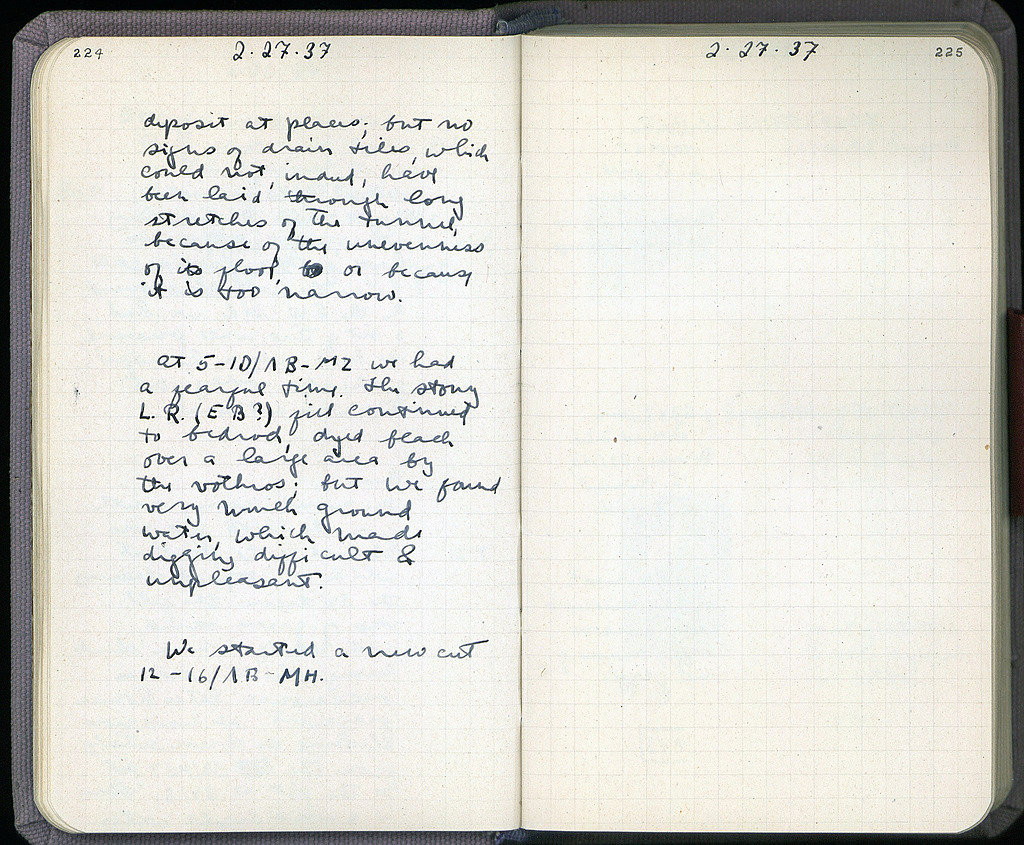 224
2·27·37
deposit at places; but no
signs of drain tiles, which
could not, indeed, have
been laid through long
stretches of the tunnel,
because of the unevenness
of its floor, or because
it is too narrow.
At 5-10/ΛB-MZ we had
a fearful time. The stony
L.R. (EB?) fill continued
to bedrock, dyed black
over a large area by
the vothros; but we found
very much ground
water, which made
digging difficult &
unpleasant.
We started a new cut
12-16/ΛB-MH.
2·27·37
225